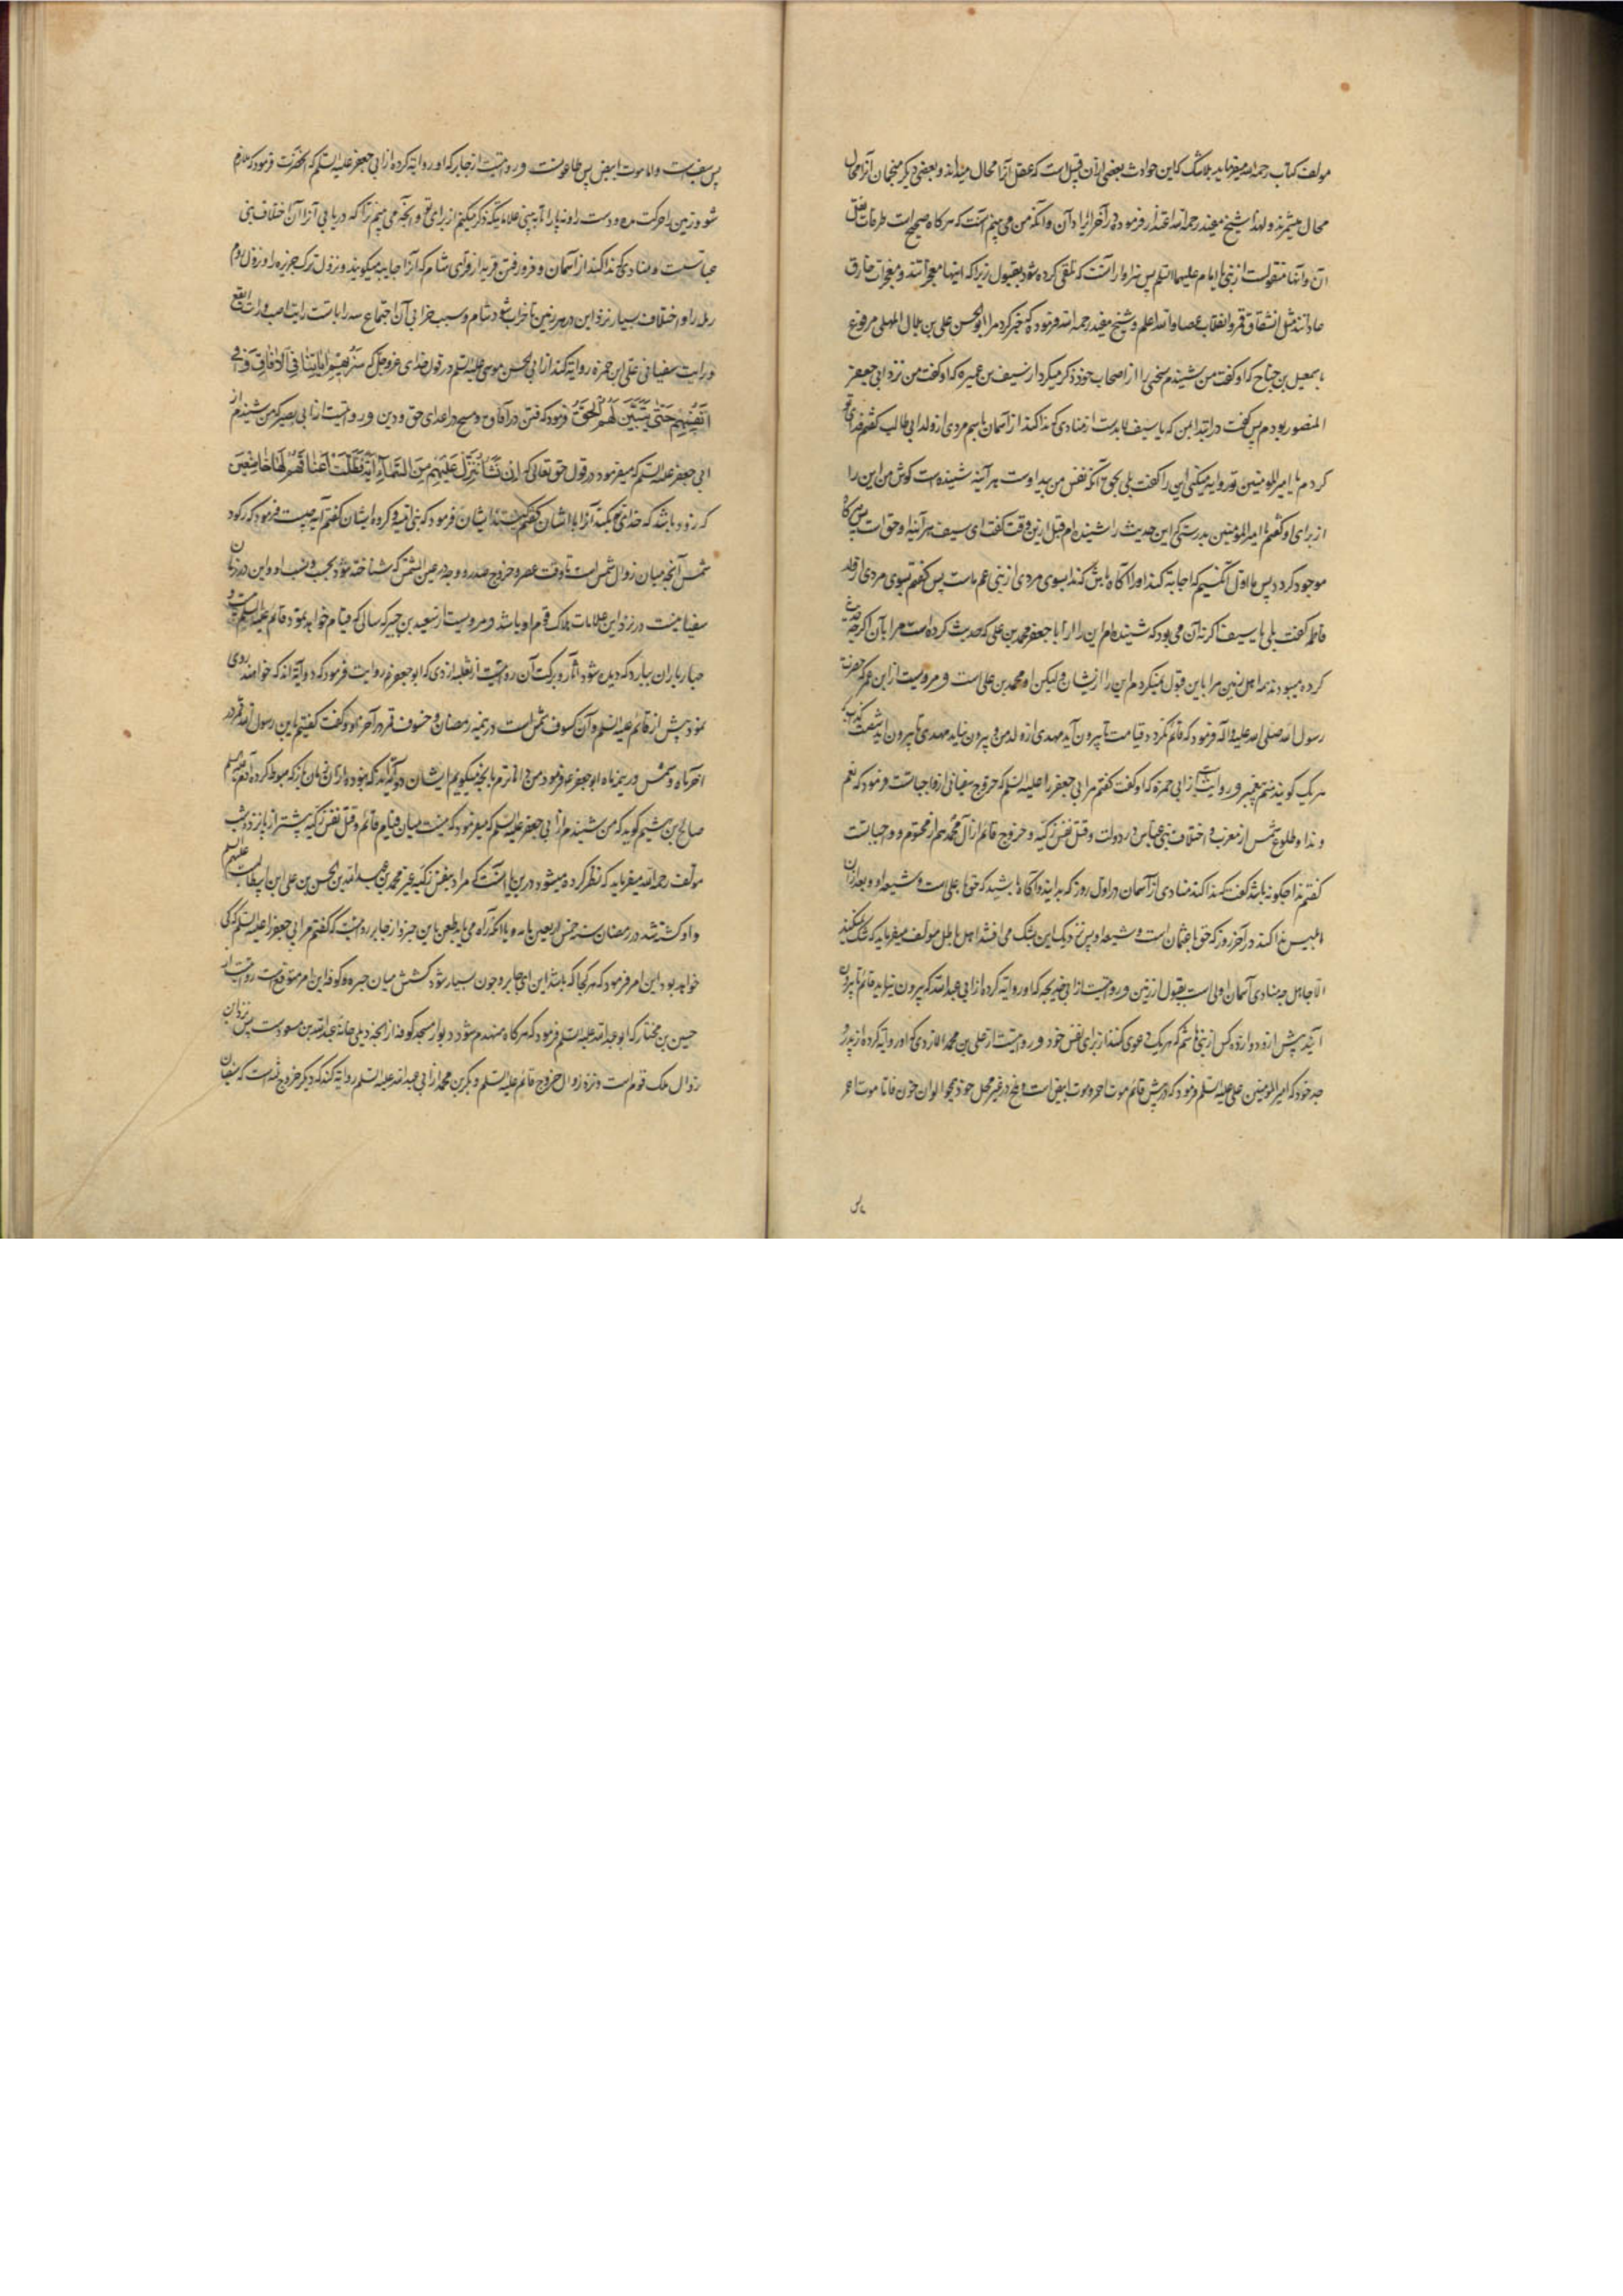 مولف کتاب رحمه الله میفرماید بلاشک که این حوادث بعضی ازان قبیل است که عقل آنرا محال میداند و بعضی دیگر منجمان آنرا محال
محال میشمرند و لهذا شیخ مفید رحمه الله اعتذار فرموده در آخر ایراد آن و آنکه من می بینم آنست که هرکاه صحیح است طرقات نقل
آن و آنها منقولست از نبی یا امام علیهما السلم پس سزاوار آنست که تلقی کرده شود بقبول زیرا که اینها معجزاتند و معجزات خارق
عاداتند مثل انشقاق قمر و انقلاب عصا و الله اعلم و شیخ مفید رحمه الله فرموده که خبر کرد مرا ابو الحسن علی بن بلال المهلبی مرفوع
باسمعیل بن جناح که او کفت من شنیدم سخنی را از اصحاب خود ذکر میکرد از سیف بن عمیره که او کفت من نزد ابی جعفر
المنصور بودم پس کفت در ابتدا من که یا سیف لابدست از منادی که ندا کند از آسمان باسم مردی از ولد ابی طالب کفتم فدای تو
کردم یا امیر المومنین تو روایه میکنی این را کفت بلی بحق آنکه نفس من بید اوست هر آینه شنیده است کوش من این را
از برای او کفتم یا امیر المومنین بدرستی که این حدیث را نشنیده ام قبل ازین وقت کفت ای سیف هر آینه او حق است پس هرکاه
موجود کردد پس ما اول آنکسیم که اجابه کند او را آکاه باش که ندا بسوی مردی از بنی عم ماست پس کفتم بسوی مردی از ولد
فاطمه کفت بلی یا سیف اکر نه آن می بود که شنیده ام این را از ابا جعفر محمد بن علی که حدیث کرده است مرا بآن اکرچه حدیث
کرده میبودند همه اهل زمین مرا باین قبول نمیکردم این را ازیشان و لیکن او محمد بن علی است و مرویست از ابن عمر که حضرت
رسول الله صلی الله علیه و آله فرمود که قائم نکردد قیامت تا بیرون آید مهدی از ولد من و بیرون نیاید مهدی تا بیرون آید شصت کذاب که
هریک کویند منم پیغمبر و روایت است از ابی حمزه که او کفت کفتم مر ابی جعفر را علیه السلم که خروج سفیانی از واجباتست فرمود که نعم
و ندا و طلوع شمس از مغرب و اختلاف بنی عباس در دولت و قتل نفس زکیه و خروج قائم از آل محمد هم از محتوم و واجباتست
کفتم ندا چکونه باشد کفت که ندا کند منادی از آسمان در اول روز که بدانید و آکاه باشید که حق با علی است و شیعه او و بعد ازان
ابلیس ندا کند در آخر روز که حق با عثمان است و شیعه او پس نزدیک این بشک می افتند اهل باطل مولف میفرماید که شک نمیکند
الا جاهل چه منادی آسمان اولی است بقبول از زمین و رویست از ابی خدیجه که او روایه کرده از ابی عبد الله که بیرون نیاید قائم تا بیرون
آیند پیش از و دوازده کس از بنی هاشم که هر یک دعوی کنند از برای نفس خود و رویست از علی بن محمد الازدی که او روایه کرده از پدر و
جد خود که امیر المومنین علی علیه السلم فرمود که در پیش قائم موت احمر و موت ابیض است و ملخ در غیر محل خود همچو الوان خون فاما موت احمر
پس
پس سیف است و اما موت ابیض پس طاعونست و رویست از جابر که او روایه کرده از ابی جعفر علیه السلم که آنحضرت فرمود که ملازم
شو و زمین را حرکت مده و دست را و نه پا را تا به بینی علاماتیکه ذکر میکنم از برای تو و آنچه می بینم ترا که دریابی آنرا آن اختلاف بنی
عباسست و منادی که ندا کند از آسمان و فرو رفتن قریه از قرای شام که آنرا جابیه میکویند و نزول ترک جزیره را و نزول روم
رمله را و اختلاف بسیار نزد این در هر زمین تا خراب شود شام و سبب خرابی آن اجتماع سه رایاتست رایت اصهب و رایت ابقع
و رایت سفیانی علی ابن حمزه روایه کند از ابی الحسن موسی علیه السلم در قول خدای عز و جل که سَنُرِیهِم اٰیَاتِنَا فِی الاٰفَاقِ وَ فِی
اَنفُسِهِم حَتّٰی یَتَبَیَّنَ لَهُم اَنَّهُ الحَقُّ فرمود که فتن در آفاق و مسخ در اعدای حق و دین و رویست از ابی بصیر که من شنیدم از
ابی جعفر علیه السلم که میفرمود در قول حق تعالی که اِن نَشَأ نُنَزِّل عَلَیهِم مِنَ السَّمَاءِ اٰیَةً فَظَلَّت اَعنَاقُهُم لَهَا خَاضِعِینَ
که زود باشد که خدای بکند آنرا بایشان کفتم کیستند ایشان فرمود که بنی امیه و کروه ایشان کفتم آیه چیست فرمود که رکود
شمس آنچه میان زوال شمس است تا وقت عصر و خروج صدر و وجه در عین الشمس که شناخته شود بحسب و نسب او و این در زمان
سفیانیست و در نزد این علامات هلاک قوم او باشد و مرویست از سعید بن جبیر که سالی که قیام خواهد نمود قائم علیه السلم بیست و
چهار باران ببارد که دیده شود آثار و برکت آن رویست از ثعلبه ازدی که ابو جعفر روایت فرمود که دو آیه اند که خواهند بودی
نمود پیش از قائم علیه السلم و آن کسوف شمس است در نیمه رمضان و خسوف قمر در آخر او کفت کفتم یا بن رسول الله قمر در
آخر ماه و شمس در نیمه ماه ابو جعفر فرمود من داناترم بآنچه میکویم ایشان دو آیه اند که نبوده از آن زمان باز که هبوط کرده آدم علیه السلم
صالح بن میثم کوید که من شنیدم از ابی جعفر علیه السلم که میفرمود که نیست میان قیام قائم و قتل نفس زکیه بیشتر از پانزده شب
مولف رحمه الله میفرماید که نظر کرده میشود درین یا آنست که مراد بنفس زکیه غیر محمد بن عبد الله بن الحسن بن علی ابن ابیطالب است علیهم السلم
و او کشته شد در رمضان سنه خمس اربعین مایه و یا آنکه راه می یابد طعن باین خبر و از جابر رویست که کفتم مر ابی جعفر را علیه السلم که کی
خواهد بود این امر فرمود که هر کجا که باشد این ای جابر و چون بسیار شود کشش میان حیره و کوفه این امر متوقع است رویست از
حسین بن مختار که ابو عبد الله علیه السلم فرمود که هرکاه منهدم شود دیوار مسجد کوفه از آنچه در پلی خانه عبد الله بن مسعود است پس نزد آن
زوال ملک قوم است و نزد زوال خروج قائم علیه السلم و بکر بن محمد از ابی عبد الله علیه السلم روایه کند که دیگر خروج ثلثه است که سفیان